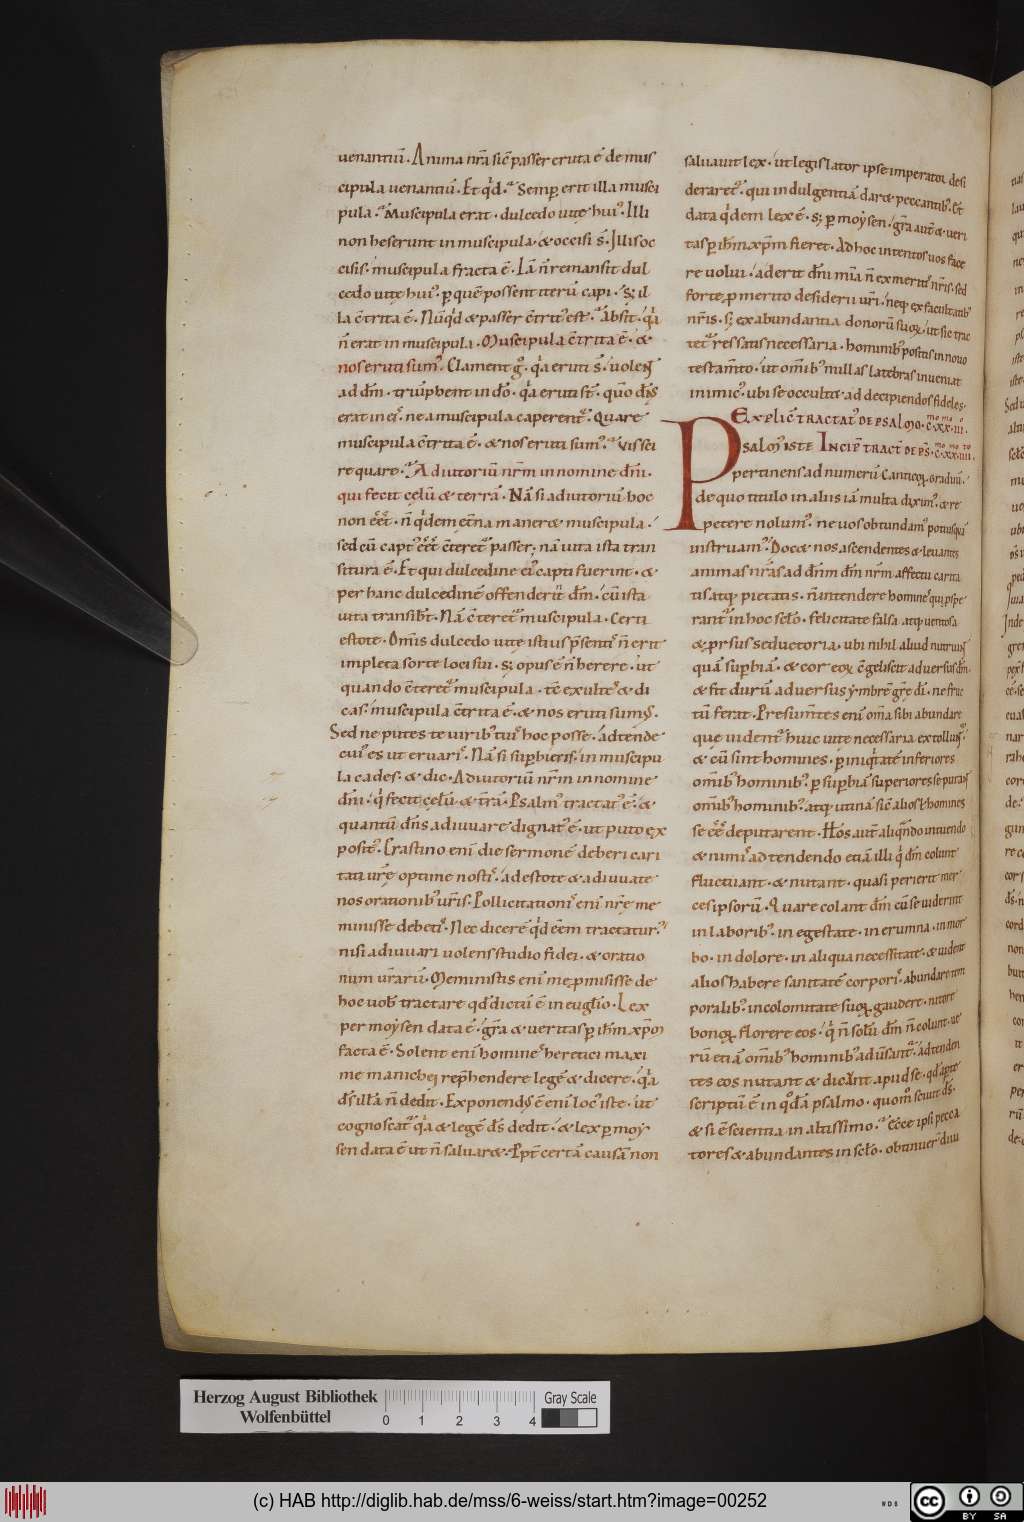 uenantiū. Anima nr̄a sic̄ passer eruta ē de mus
cipula uenantiū. Et qd̄. Semp̱ erit illa musci
pula. Muscipula erat. dulcedo uite hui᾽. Illi
non heserunt in muscipula. & occisi s̄. Illis oc
cisis. muscipula fracta ē. Iā n̄ remansit dul
cedo uite hui᾽. p̱ quē possent iterū capi. s; il
la c̄trita ē. Nūqd̄ & passer c̄trit᾽ est. Absit. qa
n̄ erat in muscipula. Muscipula c̄trita ē. &
nos eruti sum᾽. Clament g°. qa eruti s̄. uolen
ad dm̄. triūphent in dō. qa eruti st̄. quō dn̄s
erat in ei᾽. ne a muscipula caperent᾽. Quare
muscipula c̄trita ē. & nos eruti sum᾽. Vis sci
re quare. Adiutoriū nr̄m in nomine dn̄i.
qui fecit cęlū & terrā. Nā si adiutoriū hoc
non eēt. n̄ qdem et̄na maner& muscipula.
sed cū capt᾽ eēt c̄teret᾽ passer. nā uita ista tran
situra ē. Et qui dulcedine ei᾽ capti fuerint. &
per hanc dulcedinē offenderit dm̄. cū ista
uita transibt̄. Nā c̄teret᾽ muscipula. Certi
estote. Omīs dulcedo uite istius p̄senti᾽ n̄ erit
impleta sorte loci sui. s; opus ē n̄ herere. ut
quando c̄teret᾽ muscipula. tc̄ exulte᾽ & di
cas. muscipula c̄trita ē. & nos eruti sum᾽.
Sed ne putes te uirib᾽ tui᾽ hoc posse. adtende
cui᾽ es ut eruari᾽. Nā si sup̱bieris. in muscipu
la cades. & dic. Adiutoriū nr̄m in nomine
dn̄i. q̄ fecit cęlū & tr̄ā. Psalm᾽ tractat᾽ ē. &
quantū dn̄s adiuuare dignat᾽ ē. ut puto ex
posit᾽. Crastino enī die sermonē deberi cari
tati ur̄e optime nosti᾽. adestote & adiuuate
nos orationib᾽ ur̄is. Pollicitationi᾽ enī nr̄e me
minisse debeti᾽. Nec dicerē qd̄ eēm tractatur᾽
nisi adiuuari uolens studio fidei. & oratio
num ur̄arū. Meministis enī me p̱misisse de
hoc uob̄ tractare qd̄ dictū ē in euglio. Lex
per moẏsen data ē. gr̄a & ueritas p̱ ihm̄ xp̄m
facta ē. Solent enī homine᾽ heretici maxi
me manichei rep̄hendere legē & dicere. qa
ds̄ illā n̄ dedit. Exponend᾽ ē enī loc᾽ iste. ut
cognoscat᾽ qa & legē ds̄ dedit. & lex p̱ moẏ
sen data ē ut n̄ saluar&. Ppt̄ certā causā non
saluauit lex. ut legislator ipse imperator desi
deraret᾽. qui indulgentiā dar& peccantib᾽. Et
data qdem lex ē. s; p̱ moẏsen. gr̄a aut̄ & ueri
tas p̱ ihm̄ xp̄m fieret. Ad hoc intentos uos face
re uolui. aderit dn̄i mīa n̄ ex meriti᾽ nr̄is. sed
forte p̱ merito desiderii ur̄i. neq; ex facultatib᾽
nr̄is. s; ex abundantia donorū suoꝝ. ut sic trac
tet᾽ res satis necessaria. hominib᾽ positis in nouo
testam̄to. ut om̄ib᾽ nullas latebras inueniat
inimic᾽. ubi se occult&. ad decipiendos fideles.
EXPLIC̄ TRACTAT᾽ DE PSALMO. C. XX. III.
PSALM᾽ ISTE INCIP̄ TRACT᾽ DE PS̄. C. XX. IIII.
pertinens ad numerū Canticoꝝ graduū.
de quo titulo in aliis iā multa dixim᾽. & re
petere nolum᾽. ne uos obtundam᾽ potius quā
instruam᾽. Doc& nos ascendentes & leuantes
animas nr̄as ad dn̄m dm̄ nr̄m affectu carita
tis atq; pietatis. n̄ intendere homine᾽ qui p̱spe
rant᾽ in hoc sclō. felicitate falsa atq; uentosa
& p̱rsus seductoria. ubi nihil aliud nutriun
quā sup̱biā. & cor eoꝝ c̄geliscit aduersus dm̄.
& fit durū aduersus ẏmbrē gr̄e dī. ne fruc
tū ferat. Presum̄tes enī om̄a sibi abundare
que uident᾽ huic uite necessaria extollun᾽.
& cū sint homines. p̱ iniqtatē inferiores
om̄ib᾽ hominib᾽. p̱ sup̱biā superiores se putan
om̄ib᾽ hominib᾽. atq; utinā sic̄ alios ł homines
se eē deputarent. Hos aut̄ aliqn̄do intuendo
& nimi᾽ adtendendo etiā illi q̄ dm̄ colunt
fluctuant. & nutant. quasi perierit mer
ces ipsorū. Quare colant dm̄ cū se uiderint
in laborib᾽. in egestate. in erumna. in mor
bo. in dolore. in aliqua necessitate. & uident
alios habere sanitatē corpori᾽. abundare tem
poralib᾽. incolomitate suoꝝ gaudere. nitore
bonoꝝ florere eos. q̄ n̄ solū dm̄ n̄ colunt. ue
rū etiā om̄ib᾽ hominib᾽ adūsant᾽. adtenden
tes eos nutant & dicūnt apud se. qd̄ aperte
scriptū ē in qdā psalmo. quom᾽ sciuit ds̄.
& si ē scientia in altissimo. Ecce ipsi pecca
tores & abundantes in sclō. obtinuer̄ diui
Herzog August Bibliothek
Wolfenbüttel
0 1 2 3 4
Gray Scale
(c) HAB http://diglib.hab.de/mss/6-weiss/start.htm?image=00252
WDB
cc BY SA